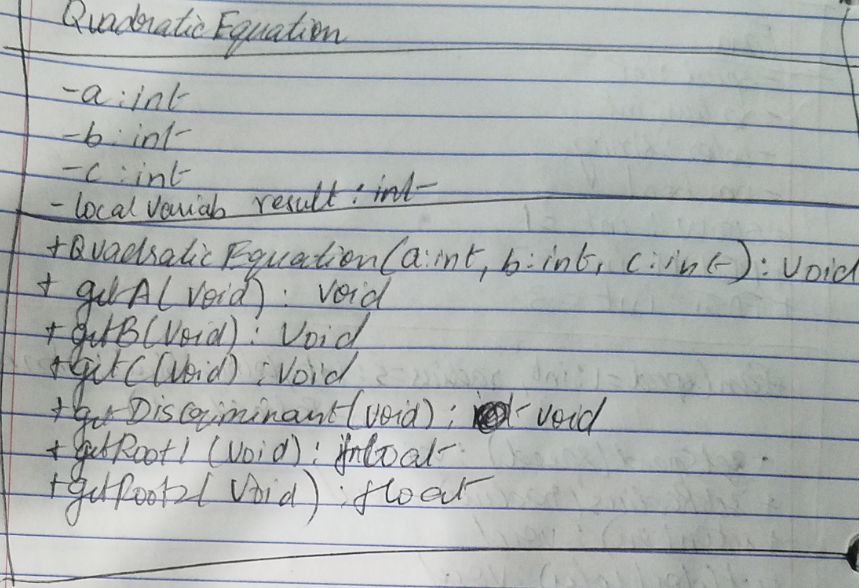 Quadratic Equation
-a : int
-b : int
-c : int
- local variab result : int
+Quadratic Equation(a:int, b:int, c:int) : void
+ getA(void) : void
+getB(void) : Void
+getC(void) : void
+getDiscriminant(void) : void
+getRoot1 (void) : float
+getRoot2( void) : float